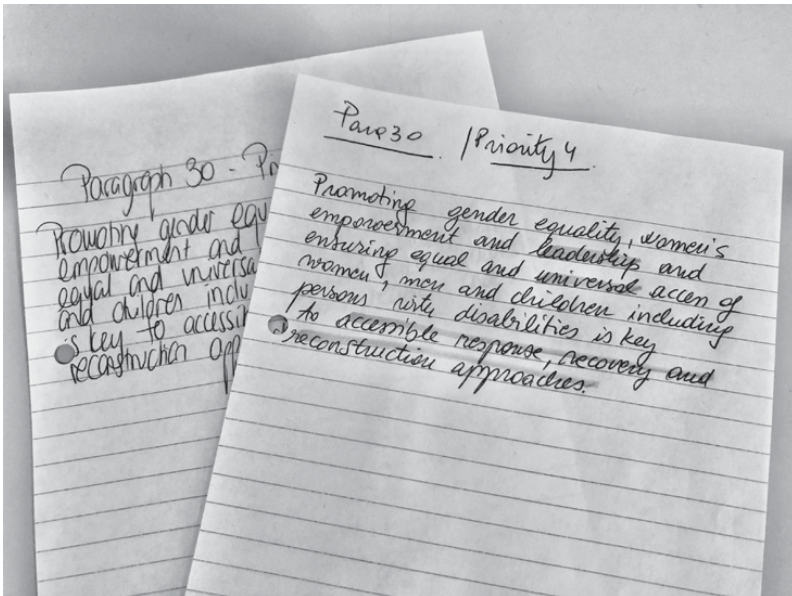 Paragraph 30 - Pr
Promoting gender equ
empowerment and
equal and universa
and children inclu
is key to accessi
reconstruction app
Para 30 / Priority 4
Promoting gender equality, women's
empowerment and leadership and
ensuring equal and universal access of
women, men and children including
persons with disabilities is key
to accessible response, recovery and
reconstruction approaches.